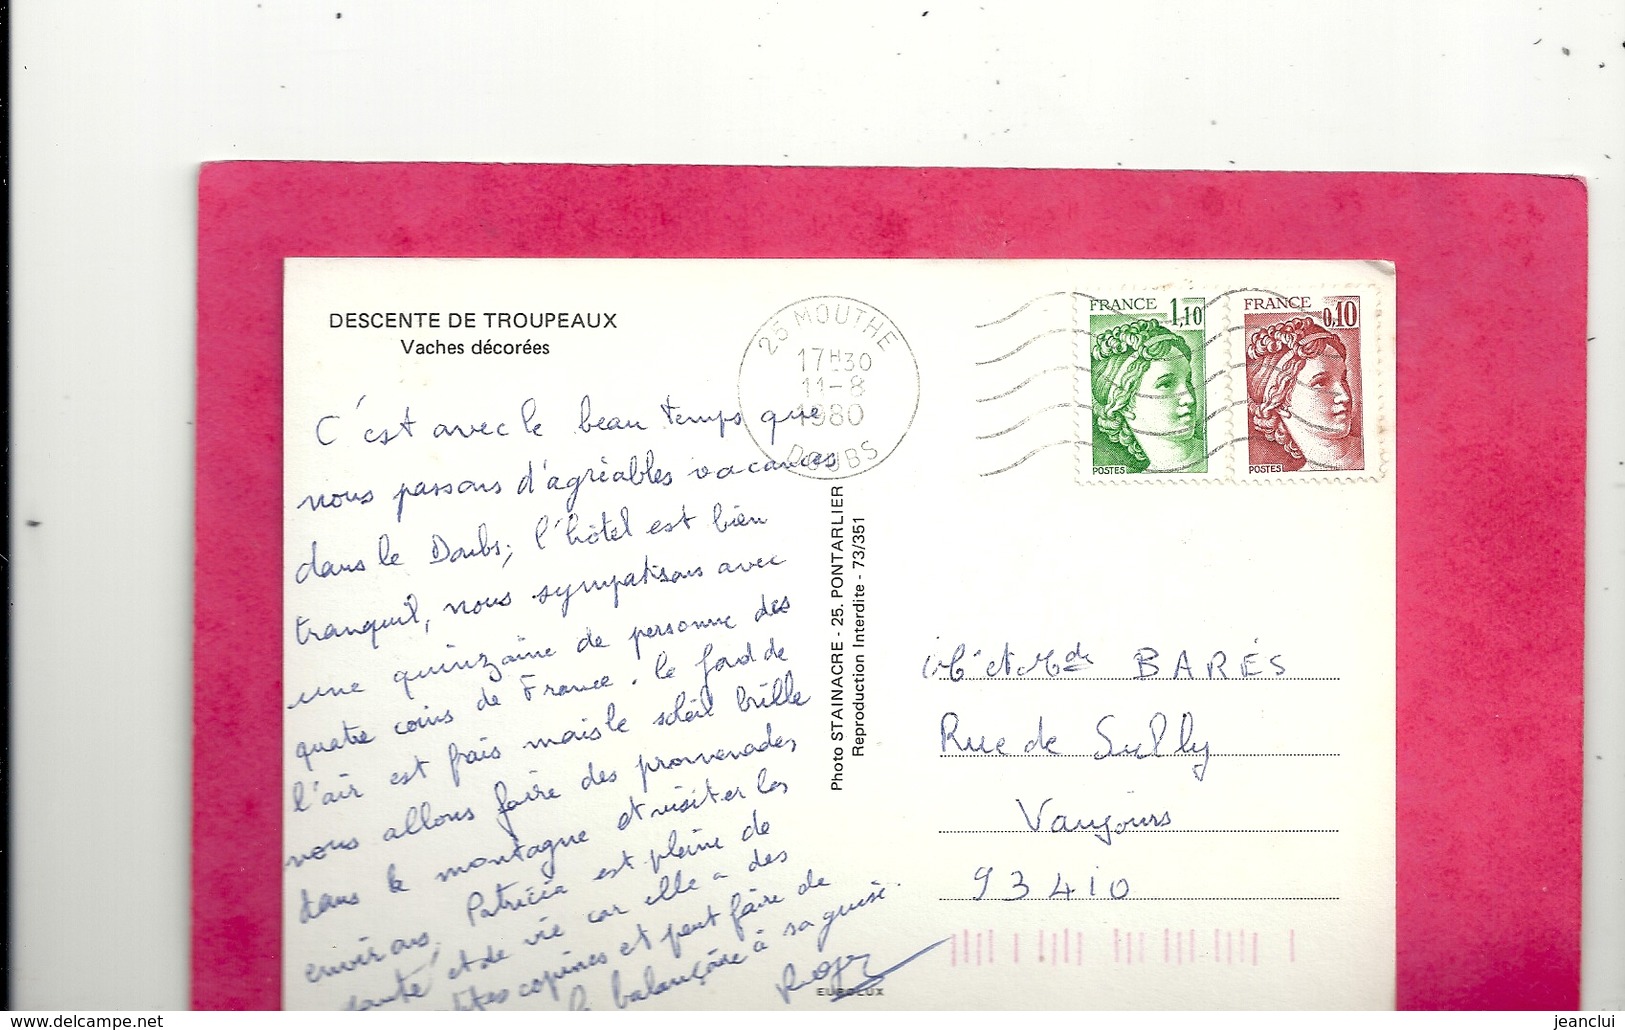 DESCENTE DE TROUPEAUX
Vaches décorées
C'est avec le beau temps que
nous passons d'agréables vacances
dans le Doubs, l'hôtel est bien
tranquil, nous sympatisons avec
une quinzaine de personne des
quatre coins de France. le fond de
l'air est frais mais le soleil brille
nous allons faire des promenades
dans la montagne et visiter les
environs. Patricia est pleine de
santé et de vie car elle a des
copines et peut faire de
la balançoire à sa guise.
Roger
25 MOUTHE
17H30
11-8
1980
DOUBS
FRANCE 1,10
POSTES
FRANCE 0,10
POSTES
Photo STAINACRE - 25. PONTARLIER
Reproduction Interdite - 73/351
Mr et Mde BARÉS
Rue de Sully
Vaujours
93410
EUROLUX
www.delcampe.net
jeanclui